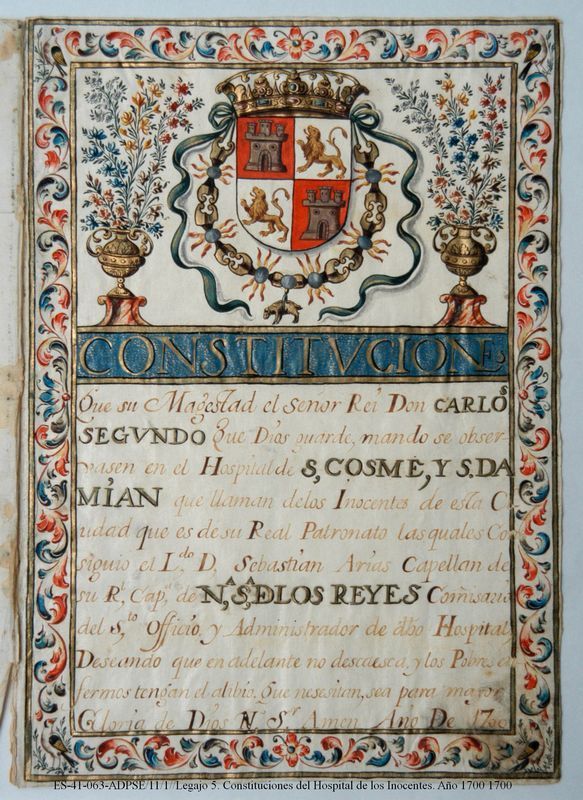 CONSTITVCIONes
Que su Magestad el Señor Rei Don CARLOs
SEGVNDO Que Dios guarde, mando se obser-
vasen en el Hospital de S, COSME, Y S. DA
MIAN que llaman delos Inocentes de esta Ci
udad que es de su Real Patronato las quales Con
siguio el L.do D, Sebastian Arias Capellan de
su R.l Cap.a de N,A S,A DLOS REYES Comisario
del S,to Officio, y Administrador de dho Hospital,
Deseando que en adelante no descaesca, y los Pobres en
fermos tengan el alibio, Que nesesitan, sea para mayor
Gloria de Dios N, S.r Amen Ano De 1700
ES-41-063-ADPSE/11/1//Legajo 5. Constituciones del Hospital de los Inocentes. Año 1700 1700